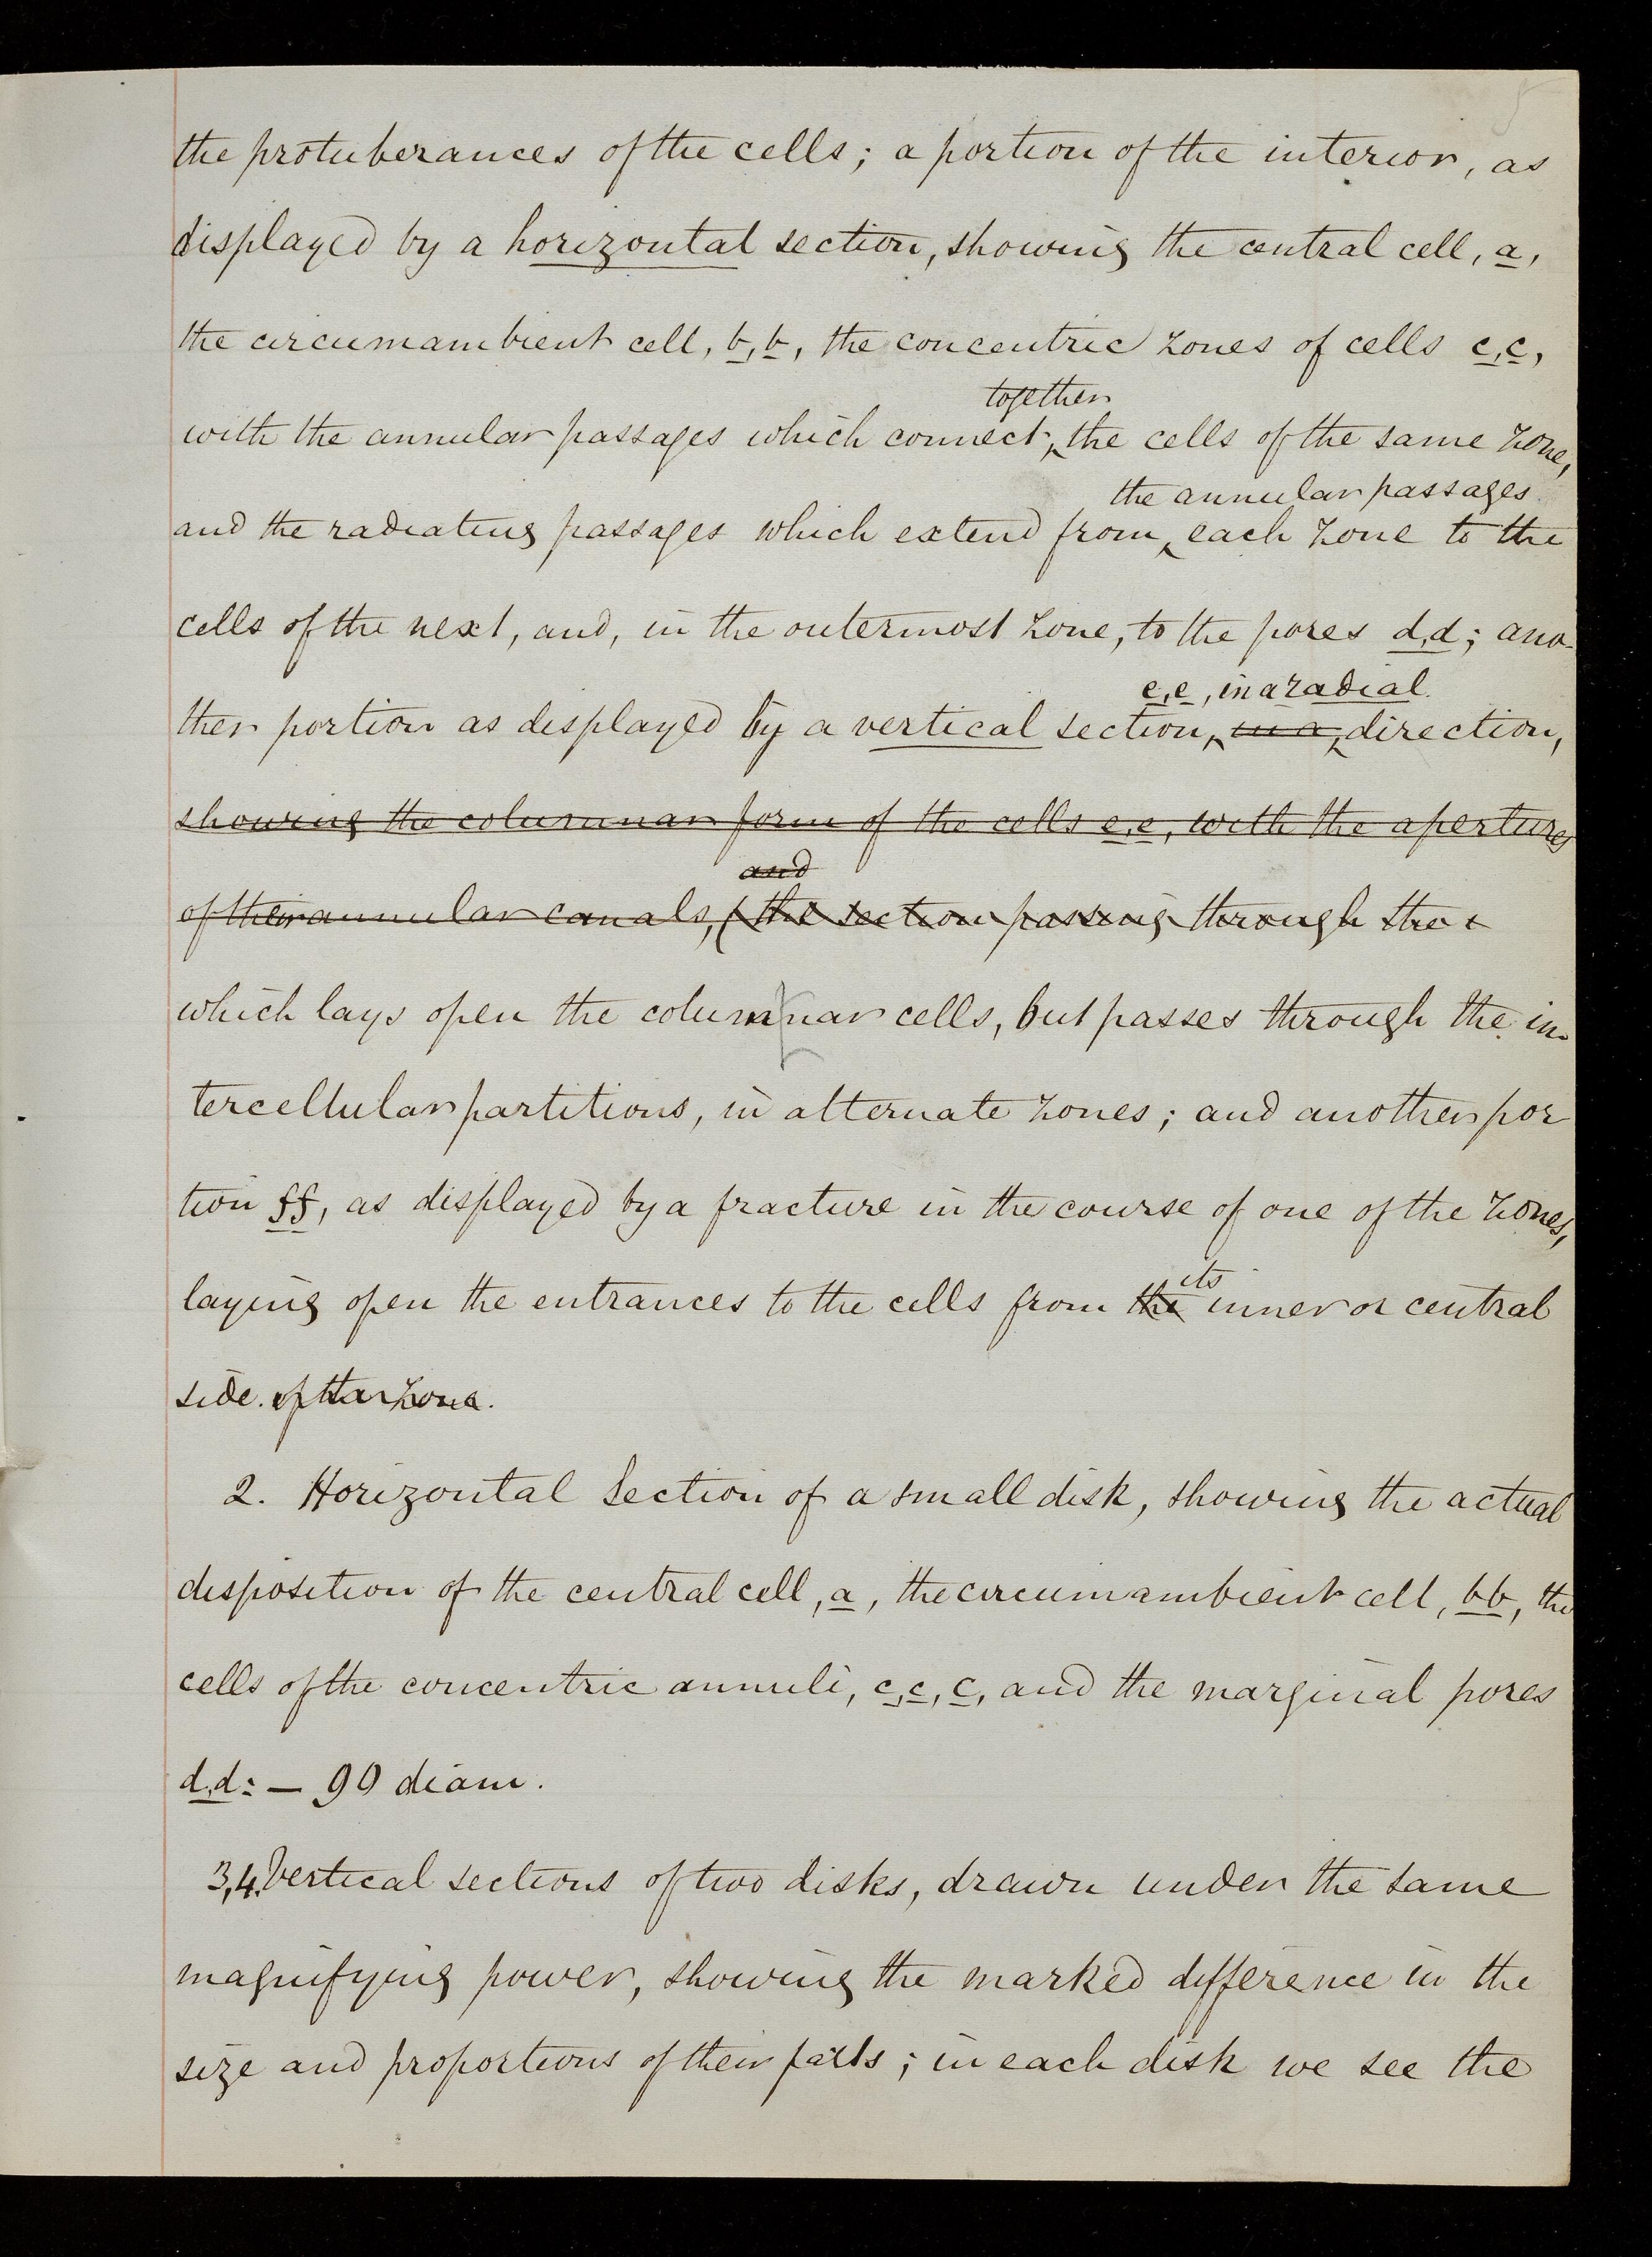 5
the protuberances of the cells; a portion of the interior, as
displayed by a horizontal section, showing the central cell, a,
the circumambient cell, b,b, the concentric zones of cells c,c,
together
with the annular passages which connect, the cells of the same zone,
the annular passages
and the radiating passages which extend from each zone to the
cells of the next, and, in the outermost zone, to the pores d,d; ano-
e,e, in a radial
ther portion as displayed by a vertical section, in a, direction,
showing the columnar form of the cells e,e, with the apertures
and
of their annular canals, (the section passing through the
which lays open the columnar cells, but passes through the in-
tercellular partitions, in alternate zones; and another por
tion ff, as displayed by a fracture in the course of one of the zones,
its
laying open the entrances to the cells from the inner or central
side. of the zone.
2. Horizontal Section of a small disk, showing the actual
disposition of the central cell, a, the circumambient cell, bb, the
cells of the concentric annuli, c,c,c, and the marginal pores
d,d:— 90 diam.
3,4. Vertical sections of two disks, drawn under the same
magnifying power, showing the marked difference in the
size and proportions of their parts; in each disk we see the